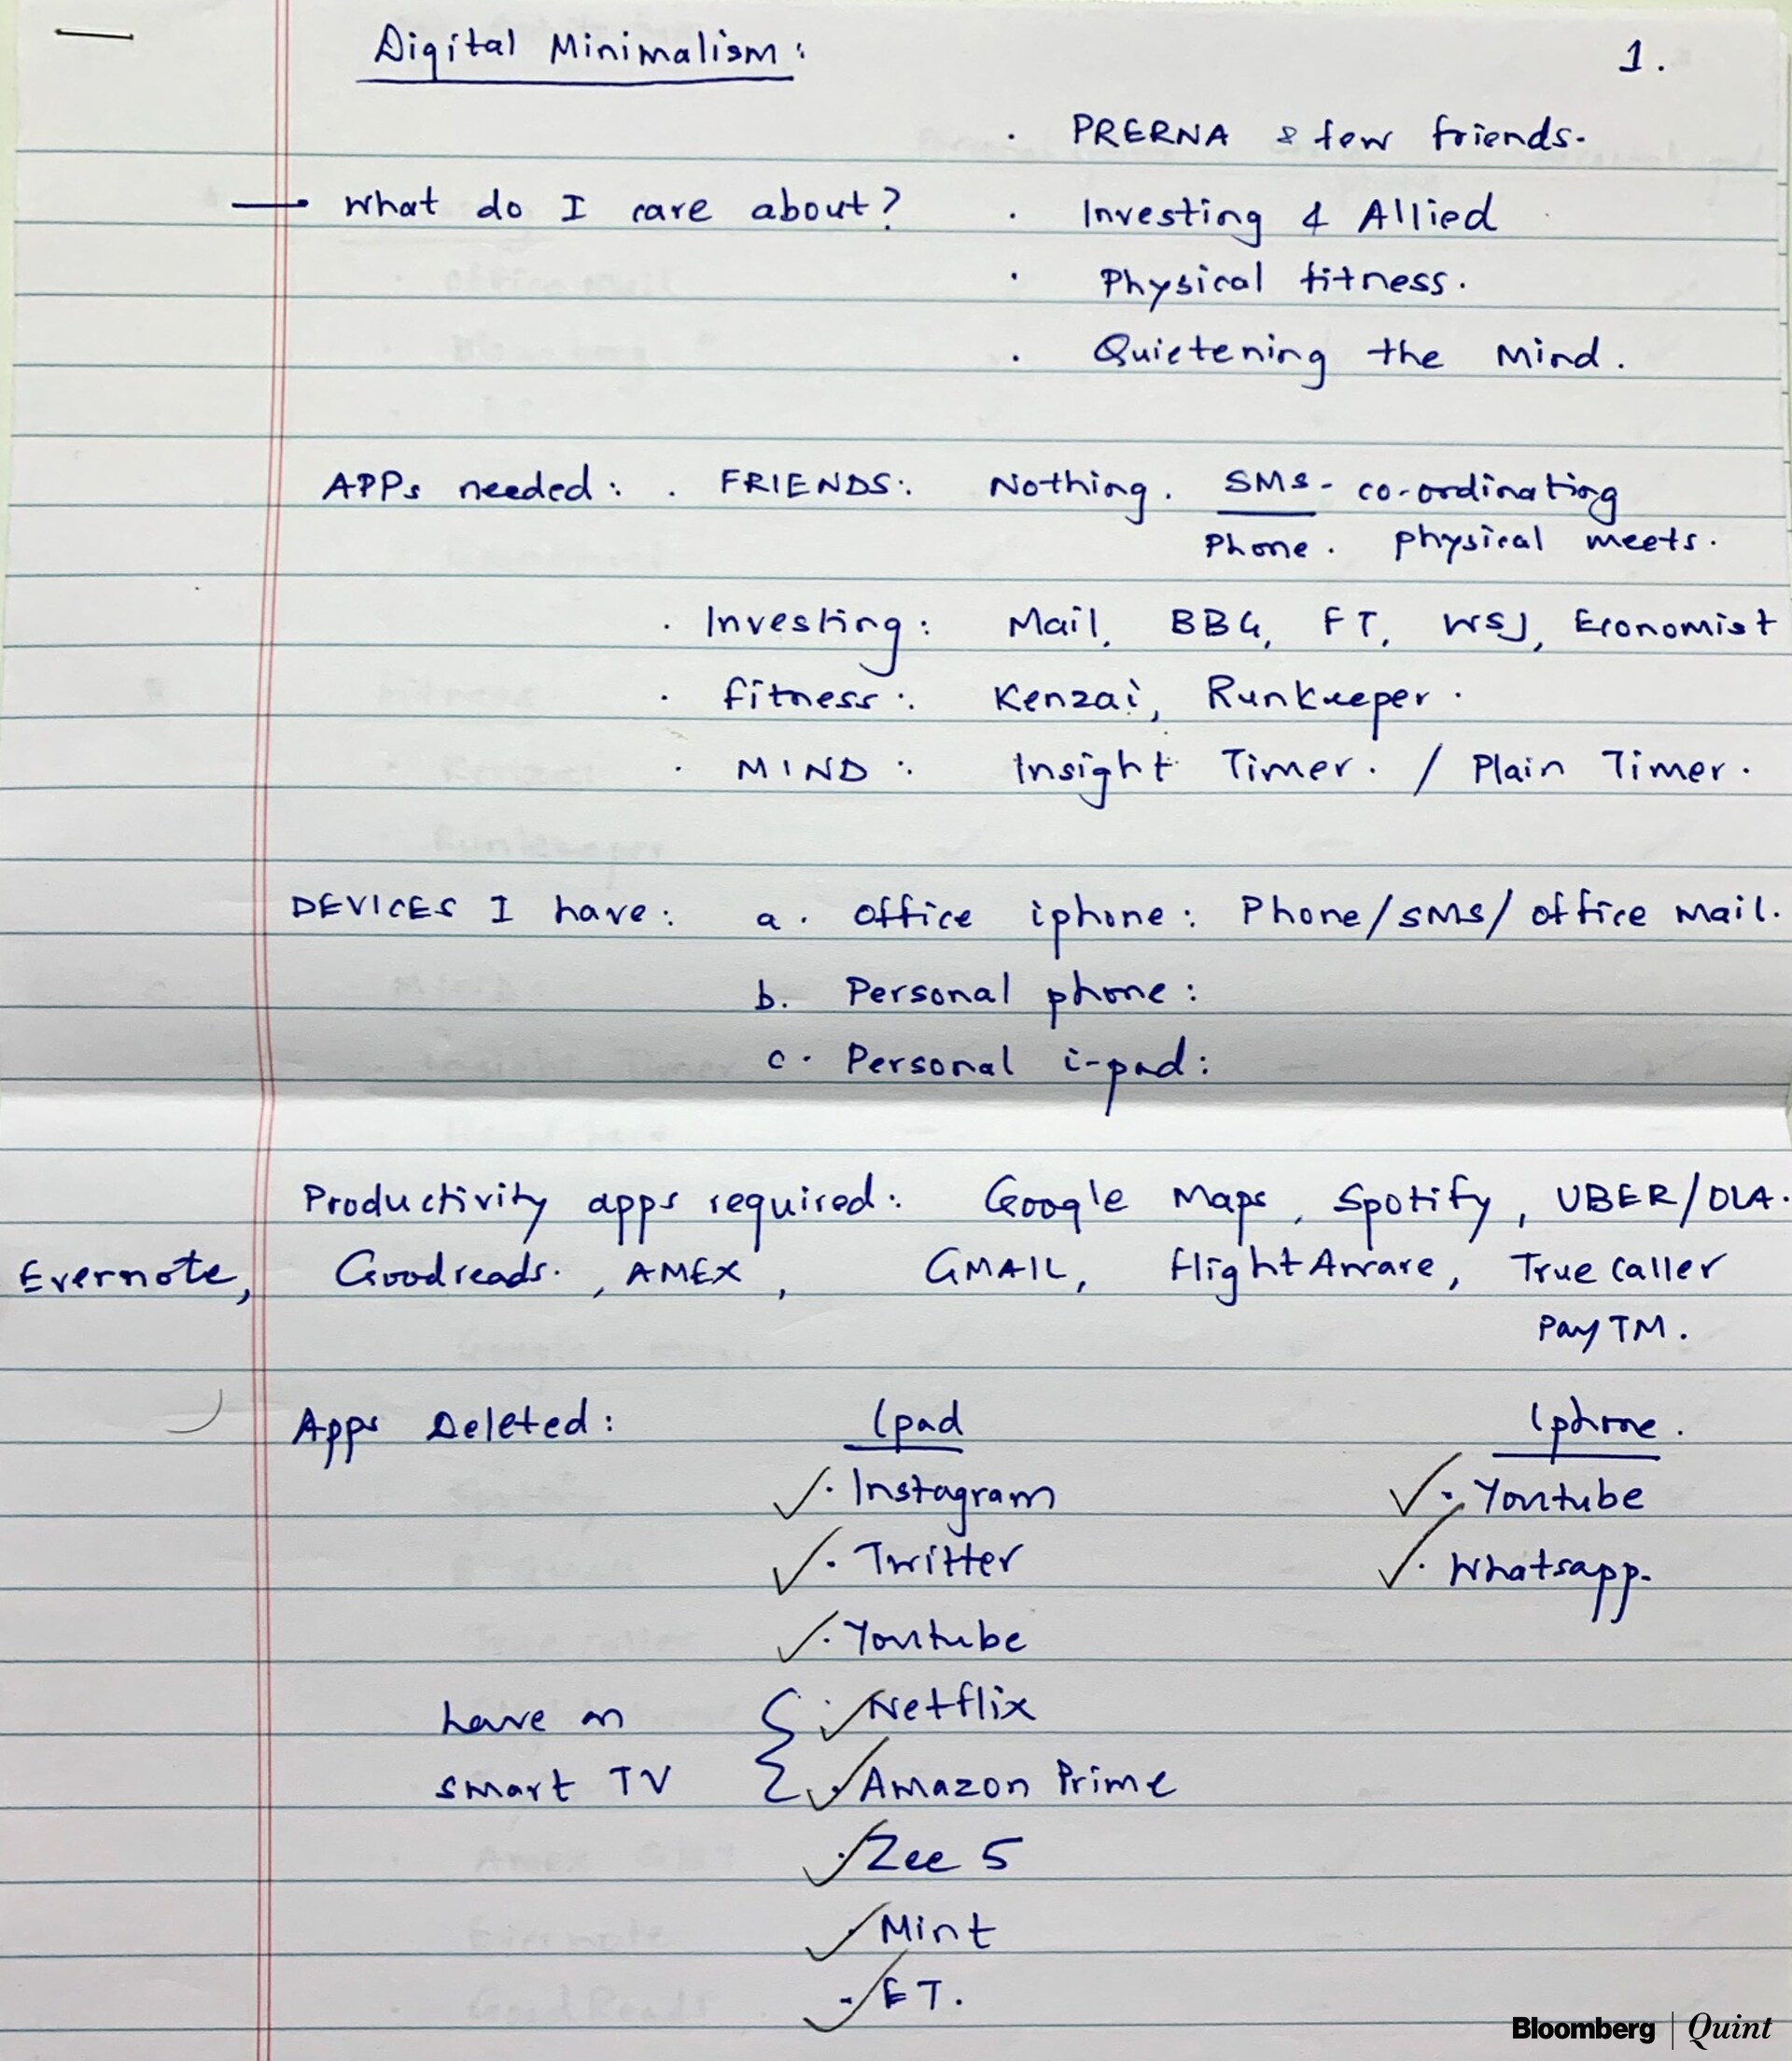 Digital Minimalism: 1.
· PRERNA & few friends.
— What do I care about? · Investing & Allied
· Physical fitness.
· Quietening the Mind.
APPs needed: · FRIENDS: Nothing. SMS - co-ordinating
Phone. physical meets.
· Investing: Mail, BBG, FT, WSJ, Economist
· fitness: Kenzai, Runkeeper.
· MIND: Insight Timer. / Plain Timer.
DEVICES I have: a. office iphone: Phone/SMS/office Mail.
b. Personal phone:
c. Personal i-pad:
Productivity apps required: Google Maps, Spotify, UBER/OLA.
Evernote, Goodreads., AMEX, GMAIL, FlightAware, True Caller
PayTM.
Apps Deleted: Ipad Iphone.
✓· Instagram ✓· Youtube
✓· Twitter ✓· Whatsapp.
✓· Youtube
have on { ·✓ Netflix
smart TV ·✓ Amazon Prime
·✓ Zee 5
✓ Mint
-✓ ET.
Bloomberg | Quint